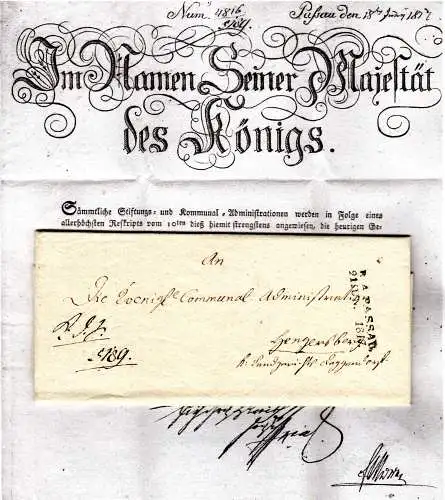 Num 4816
4789.
Passau den 18ten Juny 1817
Im Namen Seiner Majestät
des Königs.
Sämmtliche Stiftungs- und Kommunal-Administrationen werden in Folge eines
allerhöchsten Reskripts vom 10ten dieß hiemit strengstens angewiesen, die heurigen Ge-
An
Die Königle Communal Administration
Hengersberg
k. Landgerichts Deggendorf
R. d. J.
4789.
R.4.PASSAU.